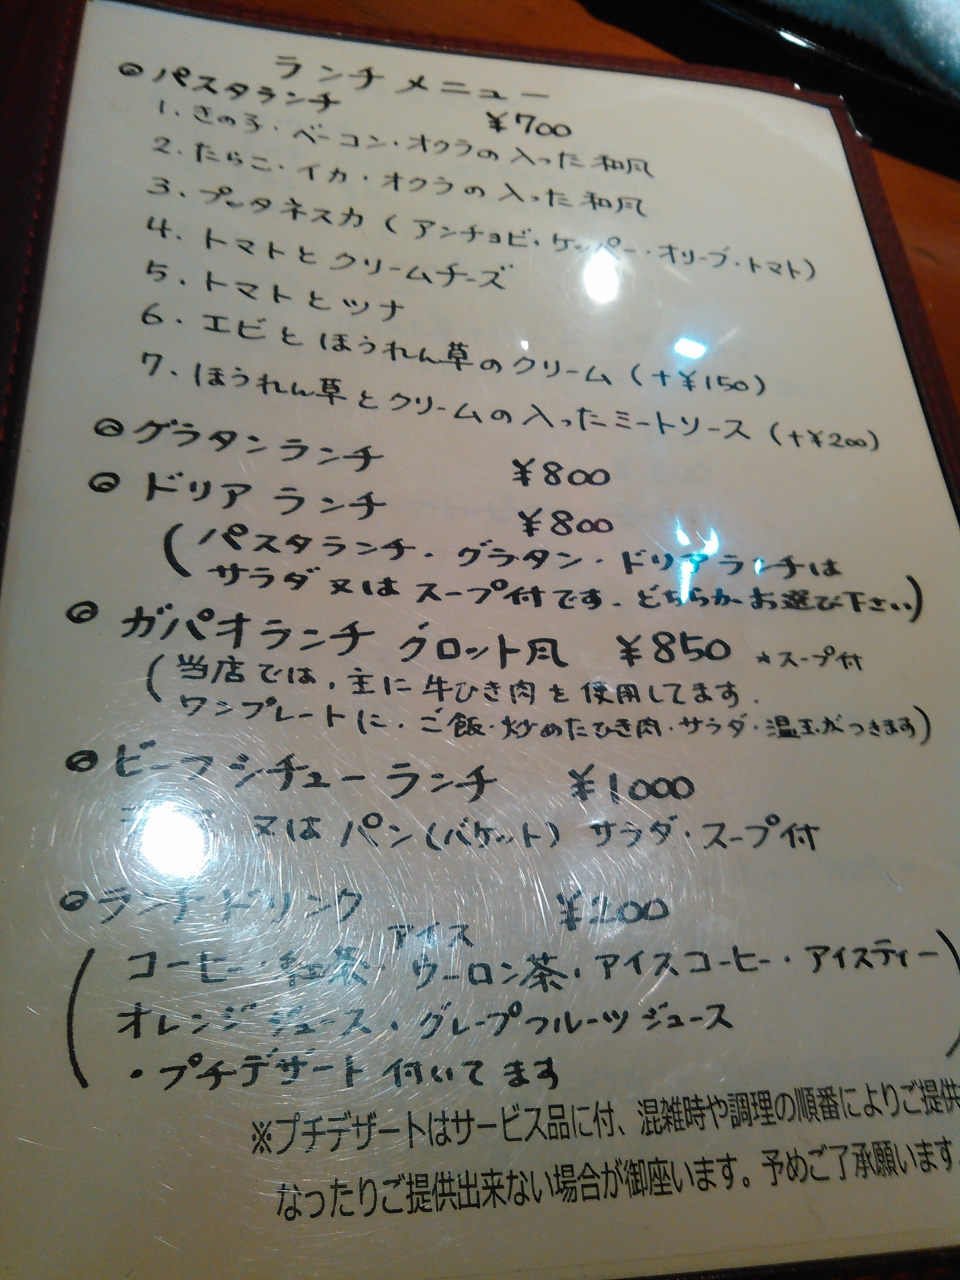 ランチメニュー
◎パスタランチ ¥700
1. きの子・ベーコン・オクラの入った和風
2. たらこ・イカ・オクラの入った和風
3. プッタネスカ(アンチョビ・ケッパー・オリーブ・トマト)
4. トマトとクリームチーズ
5. トマトとツナ
6. エビとほうれん草のクリーム(+¥150)
7. ほうれん草とクリームの入ったミートソース(+¥200)
◎グラタンランチ ¥800
◎ドリアランチ ¥800
(パスタランチ・グラタン・ドリアランチは
サラダ又はスープ付です。どちらかお選び下さい)
◎ガパオランチ グロット風 ¥850 ★スープ付
(当店では、主に牛ひき肉を使用してます.
ワンプレートに・ご飯・炒めたひき肉・サラダ・温玉がつきます)
◎ビーフシチューランチ ¥1000
又はパン(バケット) サラダ・スープ付
◎ランチドリンク ¥200
アイス
(コーヒー・紅茶・ウーロン茶・アイスコーヒー・アイスティー
オレンジジュース・グレープフルーツジュース
・プチデザート付いてます)
※プチデザートはサービス品に付、混雑時や調理の順番によりご提供
なったりご提供出来ない場合が御座います。予めご了承願います